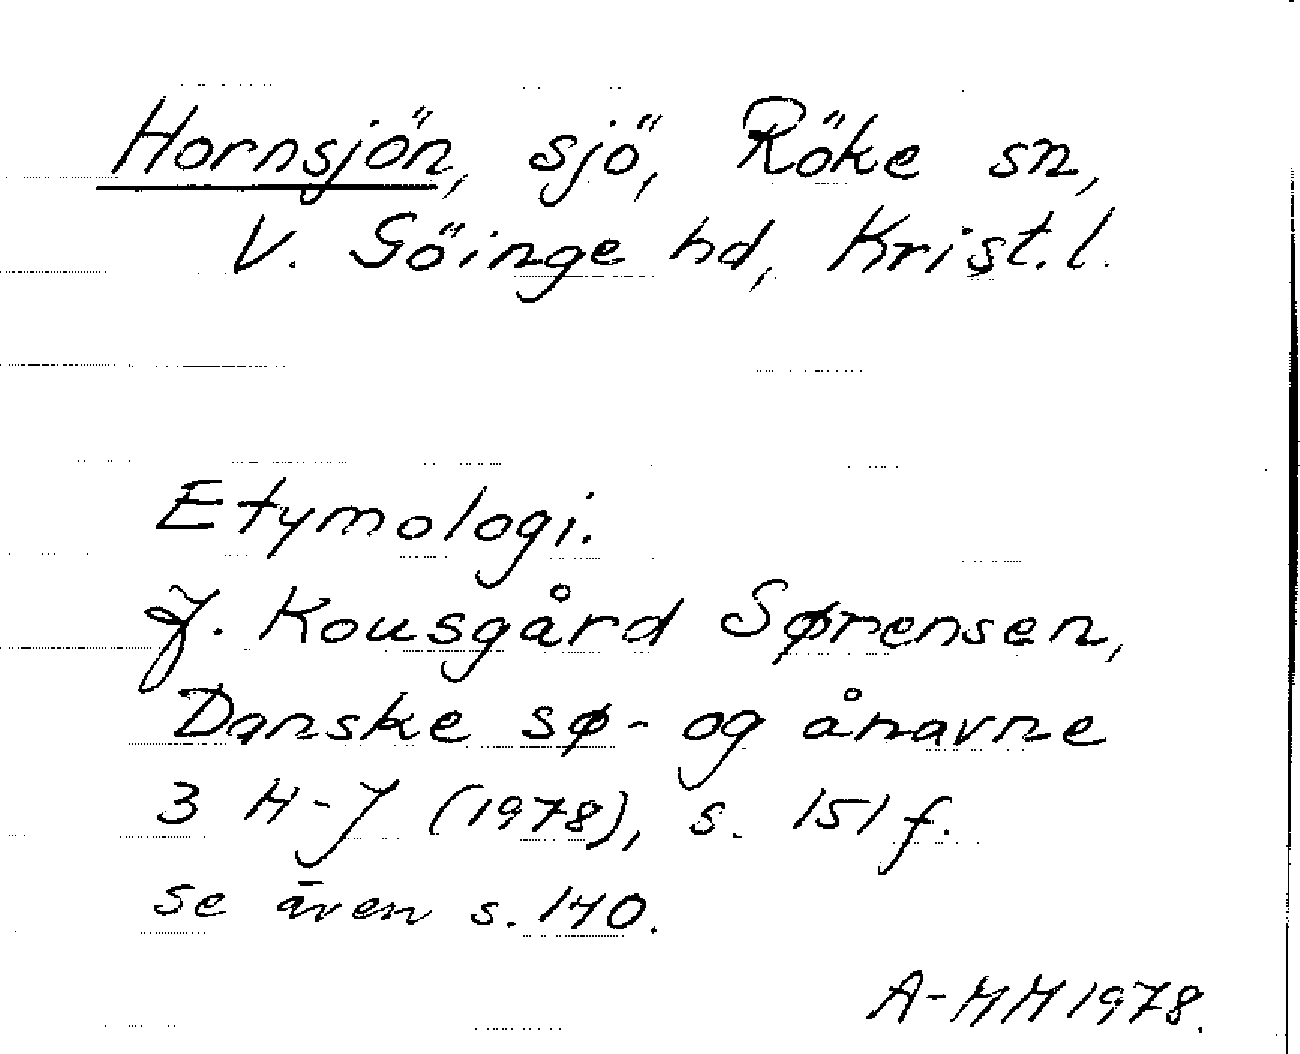 Hornsjön, sjö, Röke sn,
V. Göinge hd, Krist. l.
Etymologi.
J. Kousgård Sørensen,
Danske sø- og ånavne
3 H-J (1978), s. 151 f.
se även s. 140.
A-HH 1978.